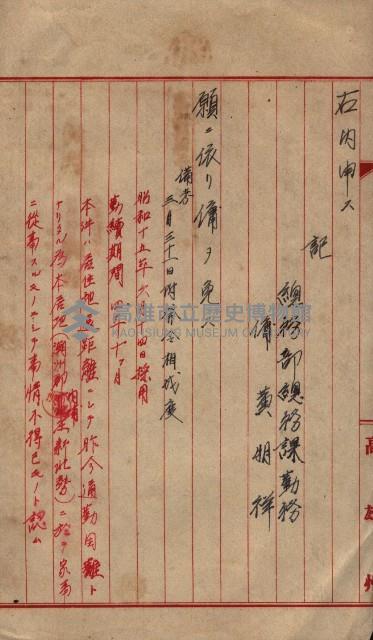 右内申ス
記
總務部總務課勤務
傭 黄明祥
願ニ依リ傭ヲ免ス
備考
三月三十一日附發令相成度
昭和十五年六月四日採用
勤續期間 四年十ヶ月
本件ハ居住地遠距離ニシテ昨今通勤困難ト
ナリタル為本居地潮州郡内埔庄新北勢ニ於テ家事
ニ從事スルモノニシテ事情不得已モノト認ム
高雄州
高雄市立歷史博物館
KAOHSIUNG MUSEUM OF HISTORY